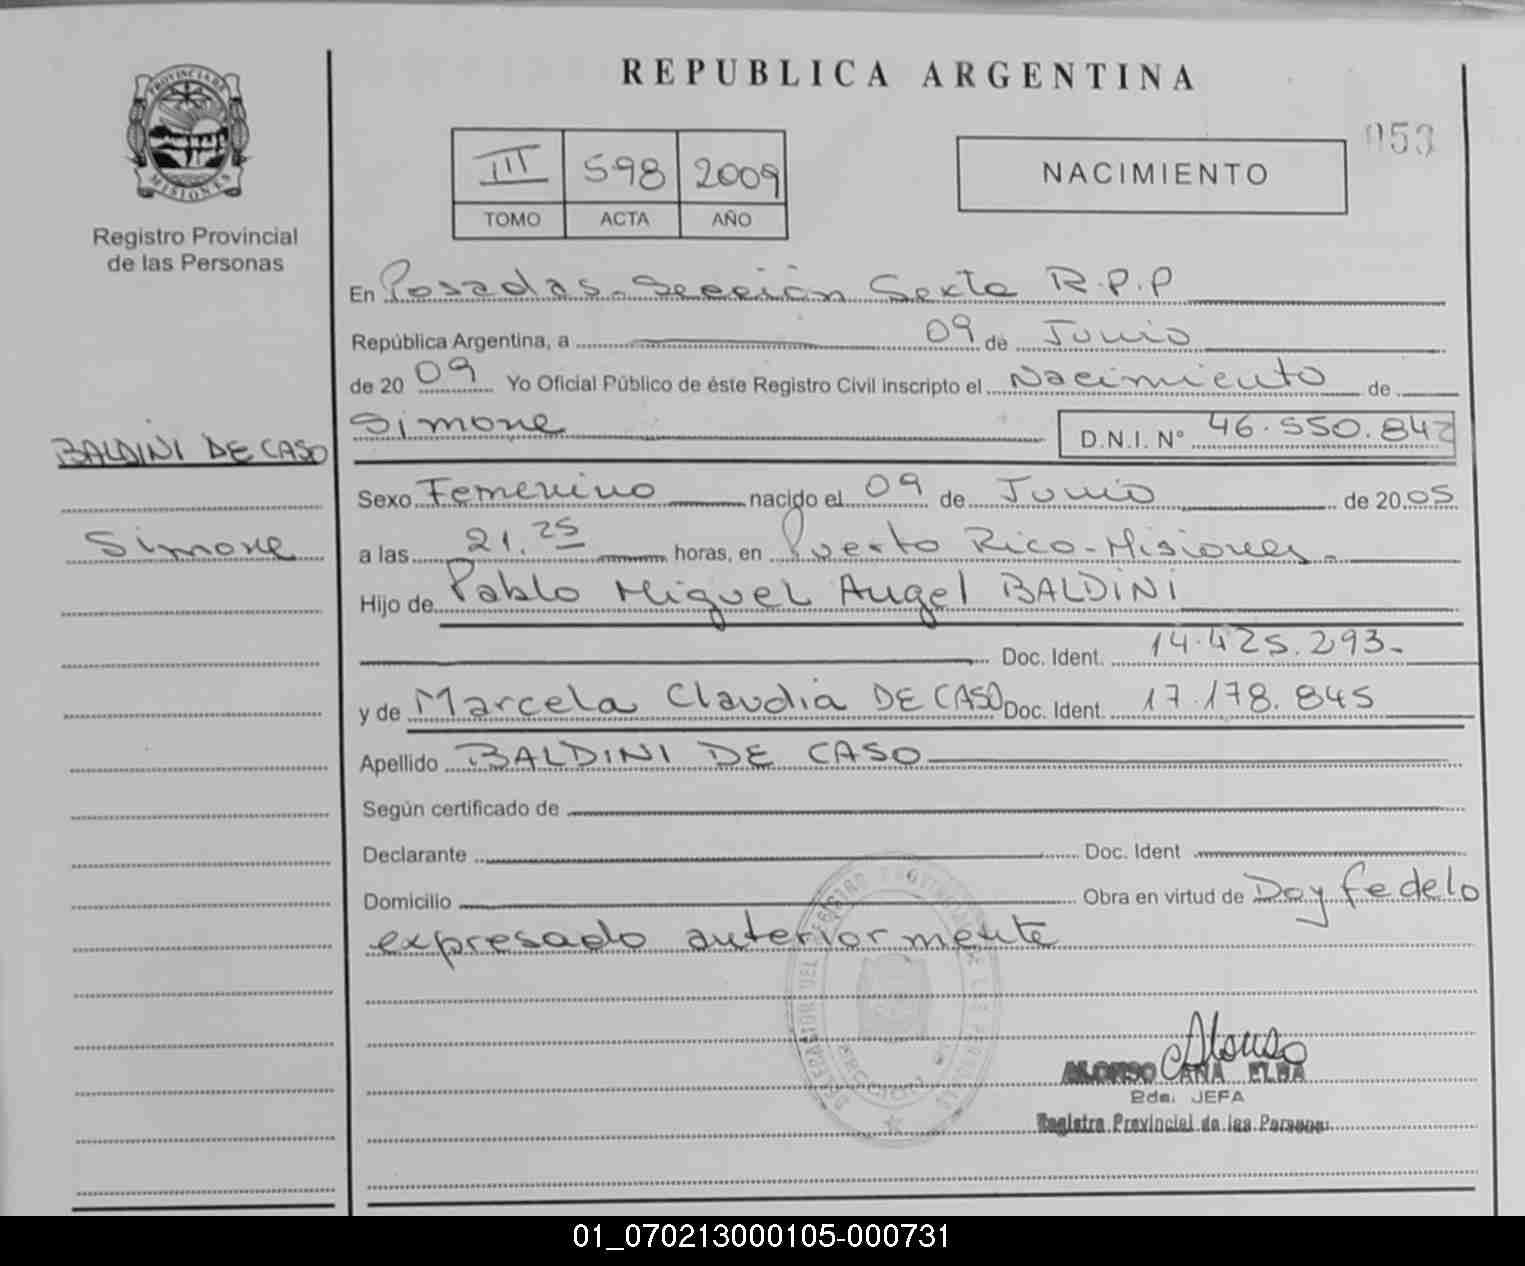 REPUBLICA ARGENTINA
PROVINCIA DE MISIONES
Registro Provincial
de las Personas
III 598 2009
TOMO ACTA AÑO
NACIMIENTO
053
En Posadas - Sección Sexta R.P.P
República Argentina, a 09 de Junio
de 2009 Yo Oficial Público de éste Registro Civil inscripto el Nacimiento de
Simone D.N.I. N° 46.550.842
BALDINI DE CASO
Simone
Sexo Femenino nacido el 09 de Junio de 2005
a las 21.25 horas, en Puerto Rico - Misiones.
Hijo de Pablo Miguel Angel BALDINI
Doc. Ident. 14.425.293.
y de Marcela Claudia DE CASO Doc. Ident. 17.178.845
Apellido BALDINI DE CASO
Según certificado de
Declarante Doc. Ident
Domicilio Obra en virtud de Doy fe de lo
expresado anteriormente
Alonso
ALONSO ANA ELBA
JEFA
Registro Provincial de las Personas
01_070213000105-000731